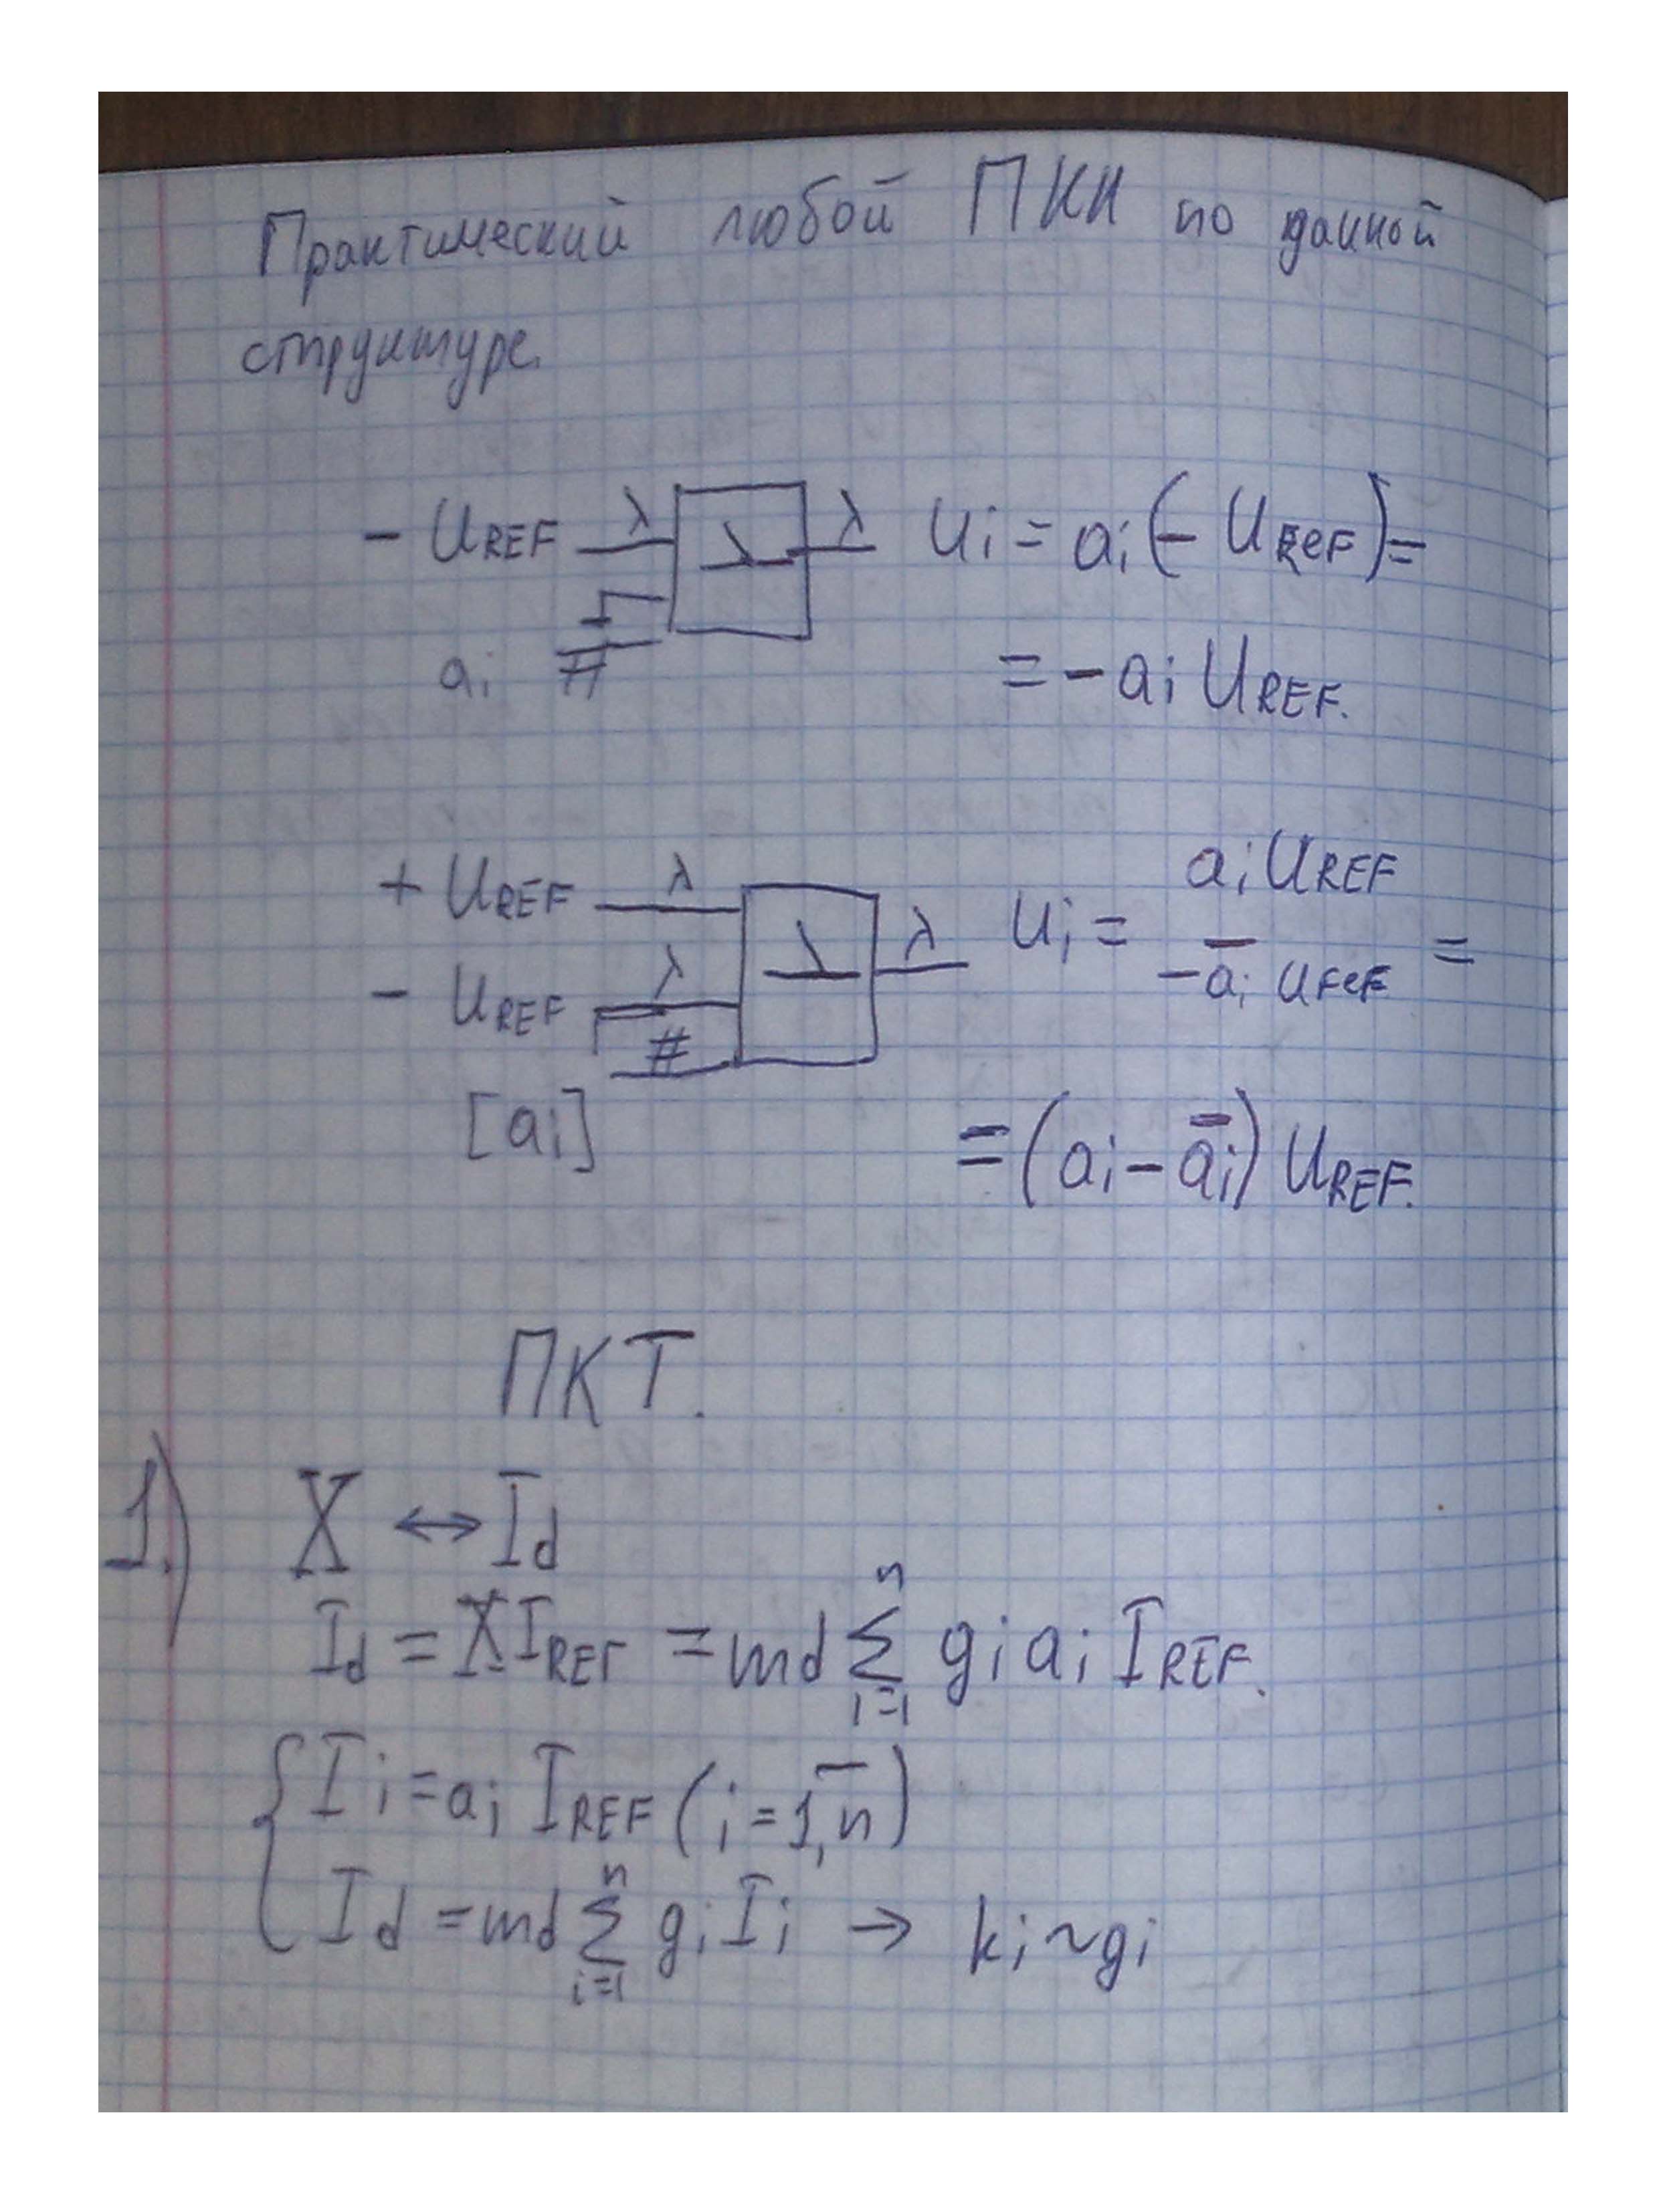 Практический любой ПКН по данной
структуре.
- U_REF λ λ U_i = a_i (- U_REF) =
a_i # = - a_i U_REF.
+ U_REF λ a_i U_REF
λ U_i = =
- U_REF λ - a̅_i U_REF
#
[a_i] = (a_i - a̅_i) U_REF.
ПКТ.
1.) X ↔ I_d
I_d = X I_REF = md Σ_{i=1}^{n} g_i a_i I_REF.
{ I_i = a_i I_REF (i = 1, n̅)
I_d = md Σ_{i=1}^{n} g_i I_i → k_i ~ g_i